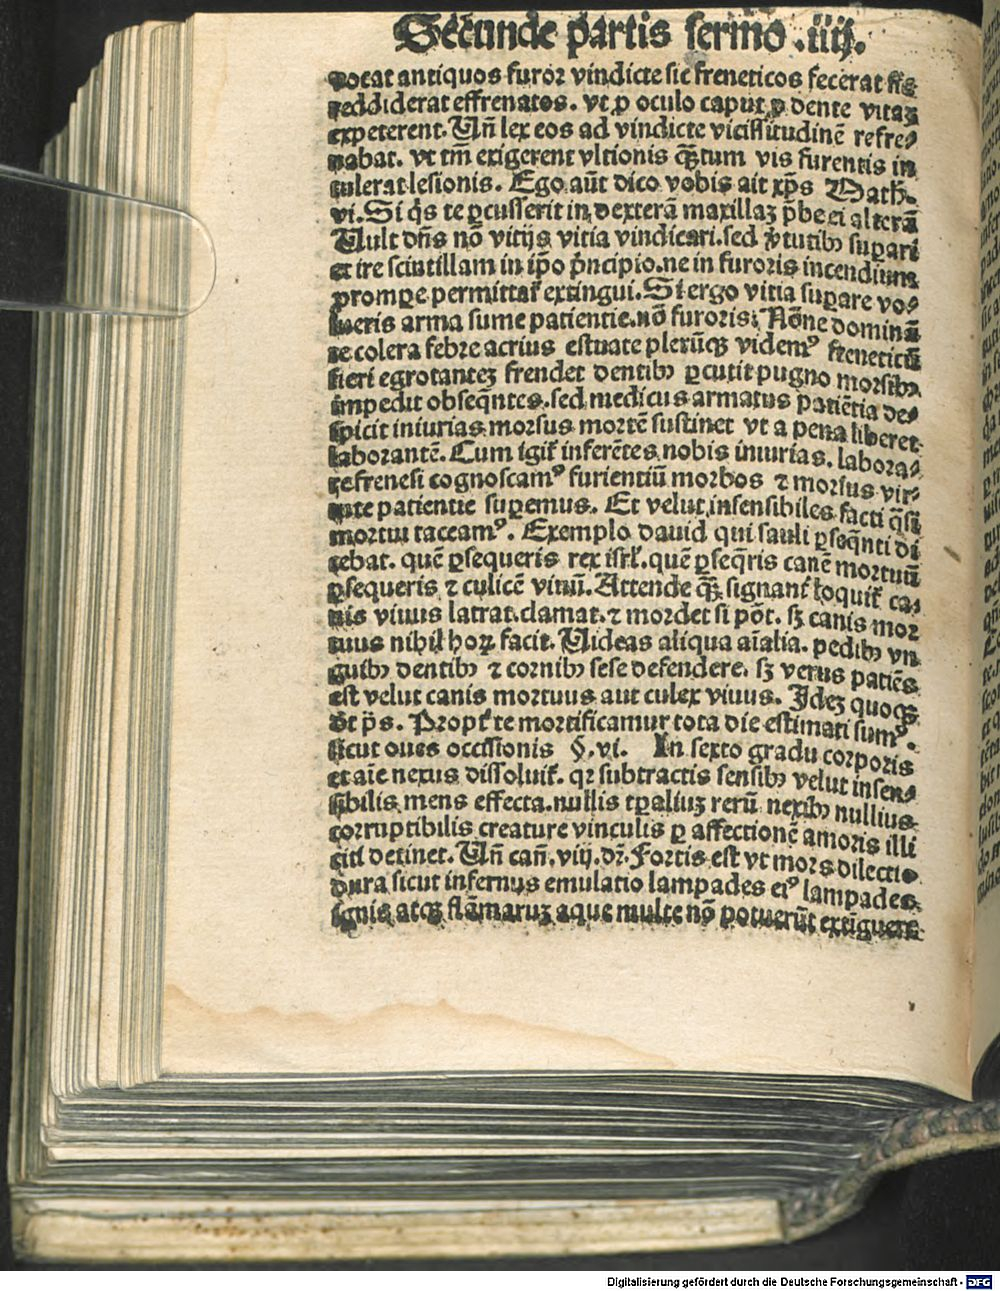 Secunde partis sermo .iiij.
vocat antiquos furor vindicte sic freneticos fecerat sic
reddiderat effrenatos. vt ꝑ oculo caput ꝓ dente vitaꝫ
expeterent. Un̄ lex eos ad vindicte vicissitudinē refre⸗
nabat. vt tm̄ exigerent vltionis qꝫtum vis furentis in
tulerat lesionis. Ego aūt dico vobis ait xp̄s Math.
vi. Si q̇s te ꝑcusserit in dexterā maxillaꝫ p̄be ei alterā
Uult dn̄s nō vitijs vitia vindicari. sed v̓tutibꝫ suꝑari
et ire scintillam in ip̄o p̓ncipio. ne in furoris incendium
prompꝑe permittat̃ extingui. Si ergo vitia suꝑare vo⸗
lueris arma sume patientie. nō furoris. Nōne dominā
te colera febre acrius estuate plerūqꝫ videmꝰ freneticū
fieri egrotanteꝫ frendet dentibꝫ ꝑcutit pugno morsibꝫ
impedit obseqn̄tes. sed medicus armatus patiētia de⸗
spicit iniurias morsus mortē sustinet vt a pena liberet
laborantē. Cum igit̃ inferētes nobis iniurias. labora⸗
re frenesi cognoscamꝰ furientiū morbos ⁊ morsus vir⸗
tute patientie suꝑemus. Et velut insensibiles facti q̄si
mortui taceamꝰ. Exemplo dauid qui sauli ꝑseqn̄ti di
cebat. quē ꝑsequeris rex isrl̓. quē ꝑseq̄ris canē mortuū
ꝑsequeris ⁊ culicē viuū. Attende qꝫ signant̃ loquit̃ ca⸗
nis viuus latrat. clamat. ⁊ mordet si pōt. sꝫ canis mor
tuus nihil hoꝝ facit. Uideas aliqua aīalia. pedibꝫ vn
guibꝫ dentibꝫ ⁊ cornibꝫ sese defendere. sꝫ verus patiēs
est velut canis mortuus aut culex viuus. Ideꝫ quoqꝫ
dt̄ p̄s. Propt̃ te mortificamur tota die estimati sumꝰ.
sicut oues occisionis §. vi. In sexto gradu corporis
et aīe nexus dissoluit̃. qꝛ subtractis sensibꝫ velut insen⸗
sibilis mens effecta. nullis tꝑaliuꝫ rerū nexibꝫ nullius
corruptibilis creature vinculis ꝑ affectionē amoris illi
citi detinet. Un̄ can̄. viij. dr̄. Fortis est vt mors dilectio
dura sicut infernus emulatio lampades eiꝰ lampades
ignis atqꝫ flāmaruꝫ aque multe nō potuerūt extīguere
Digitalisierung gefördert durch die Deutsche Forschungsgemeinschaft - DFG